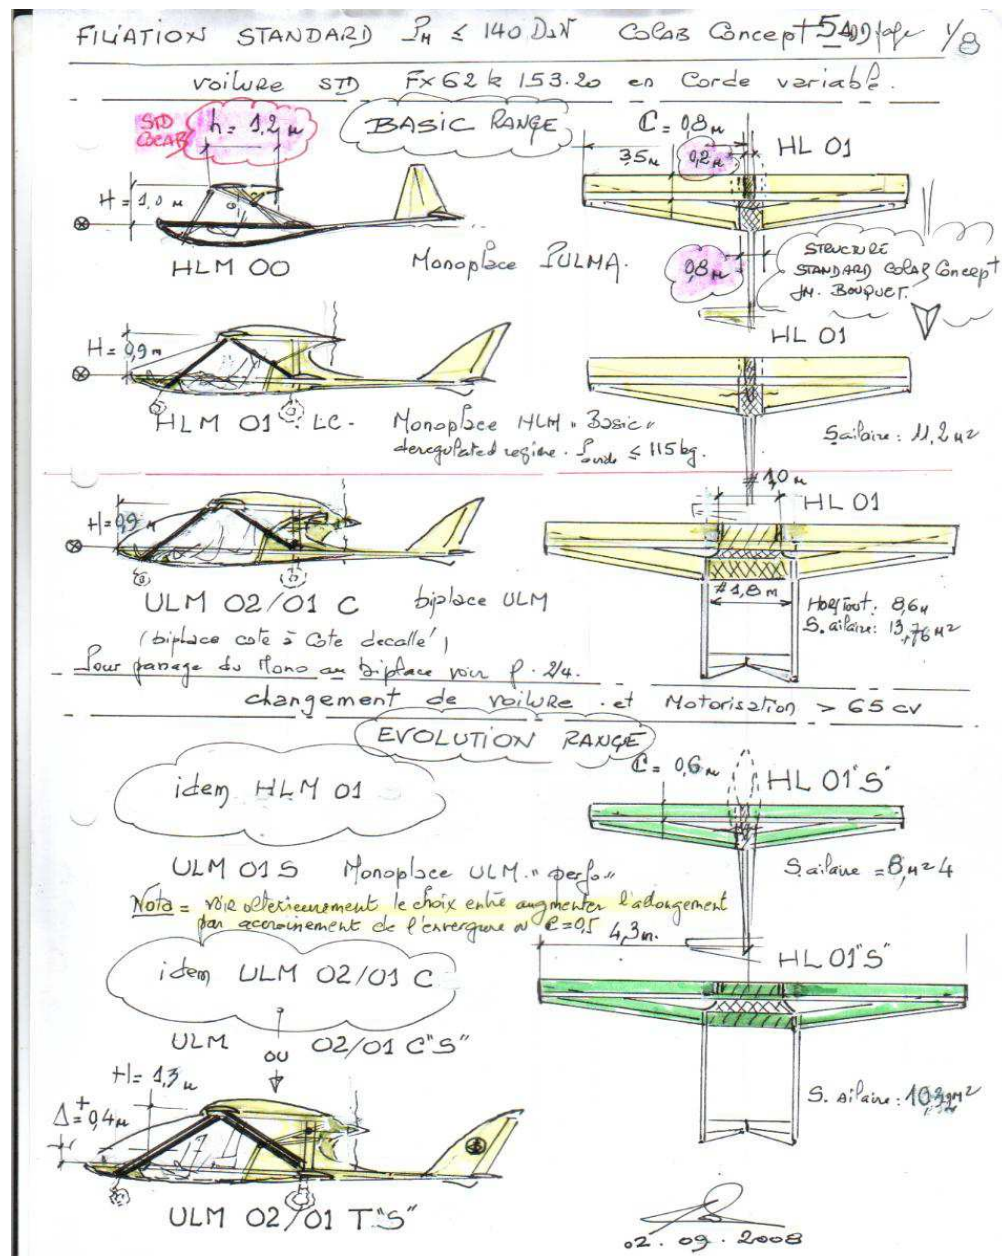 FILIATION STANDARD PM ≤ 140 DaN Colab Concept page 1/8
voilure STD FX 62 k 153.20 en Corde variable.
STD COLAB
h = 1,2 m
BASIC RANGE
C = 0,8 m
3,5 m
0,2 m
HL 01
H = 1,0 m
HLM 00
Monoplace PULMA.
0,8 m
STRUCTURE
STANDARD COLAB Concept
JM. BOUQUET.
HL 01
H = 0,9 m
HLM 01 LC -
Monoplace HLM "Basic"
deregulated regime. Pvide ≤ 115 kg.
S ailaire : 11,2 m2
1,0 m
HL 01
H = 0,9 m
ULM 02/01 C
biplace ULM
(biplace cote à Cote decallé)
≠ 1,8 m
Hors Tout : 8,6 m
S. ailaire : 13,76 m2
Pour passage du Mono au biplace voir p. 2/4.
changement de voilure et Motorisation > 65 cv
EVOLUTION RANGE
idem HLM 01
C = 0,6 m
HL 01"S"
ULM 01 S Monoplace ULM "perfo"
S. ailaire = 8,m2 4
Nota = voir ulterieurement le choix entre augmenter l'allongement
par accroissement de l'envergure C = 0,5
4,3 m.
HL 01"S"
idem ULM 02/01 C
ULM 02/01 C"S"
ou
H = 1,3 m
Δ = + 0,4 m
S. ailaire :
ULM 02/01 T"S"
02. 09. 2008